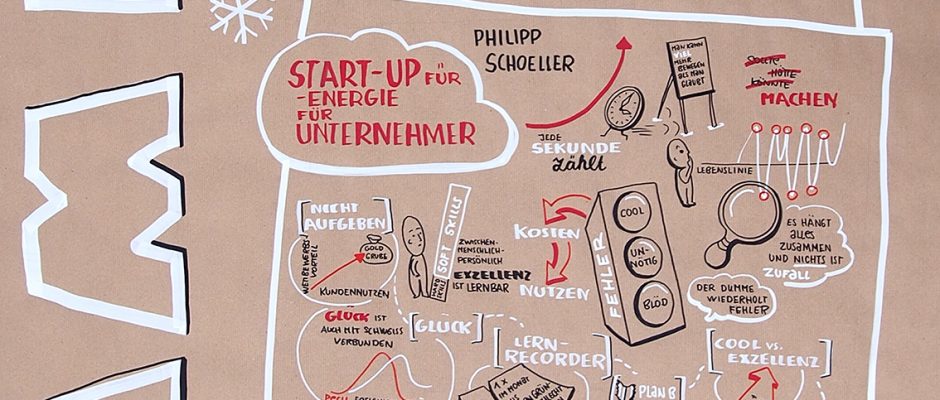 PHILIPP
SCHOELLER
START-UP FÜR
-ENERGIE
FÜR
UNTERNEHMER
JEDE
SEKUNDE
ZÄHLT
MAN KANN
VIEL
MEHR
BEWEGEN
ALS MAN
GLAUBT
SOLLTE
HÄTTE
KÖNNTE
MACHEN
LEBENSLINIE
[NICHT
AUFGEBEN]
WETTBEWERBS
VORTEIL
GOLD
GRUBE
KUNDENNUTZEN
SOFT SKILLS
HARD
SKILLS
ZWISCHEN-
MENSCHLICH-
PERSÖNLICH
EXZELLENZ
IST LERNBAR
KOSTEN
NUTZEN
FEHLER
COOL
UN-
NÖTIG
BLÖD
ES HÄNGT
ALLES
ZUSAMMEN
UND NICHTS IST
ZUFALL
DER DUMME
WIEDERHOLT
FEHLER
GLÜCK IST
AUCH MIT SCHWEISS
VERBUNDEN
[GLÜCK]
[LERN-
RECORDER]
1 X
IM MONAT
PLAN B
[COOL VS.
EXZELLENZ]